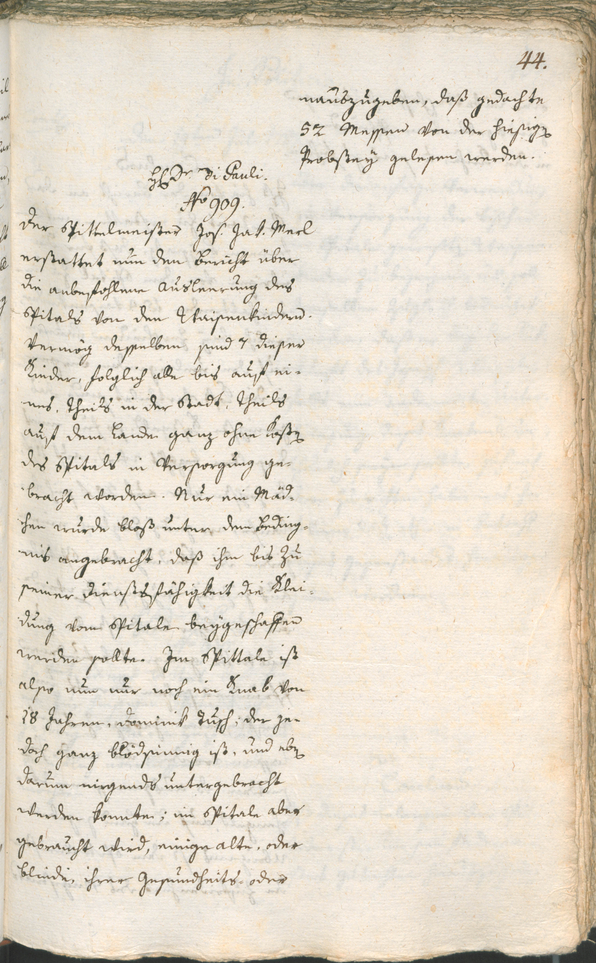 44.
nauszugeben, daß gedachte
52 Messen von der hiesigen
Probstey gelesen werden.
Hr. Dr. Di Pauli.
No 909.
Der Spittelmeister Jos. Jak. Merl
erstattet nun den Bericht über
die anbefohlene Ausleerung des
Spitals von den Waisenkindern.
Vermög desselben sind 7 dieser
Kinder, folglich alle bis auf ei-
nes, theils in der Stadt, theils
auf dem Lande ganz ohne Kosten
des Spitals in Versorgung ge-
bracht worden. Nur ein Mäd-
chen wurde bloß unter dem Beding-
nis angebracht, daß ihm bis zu
seiner Dienstsfähigkeit die Klei-
dung vom Spitale beygeschaffen
werden sollte. Im Spittale ist
also nun nur noch ein Knab von
18 Jahren, Dominik Tusch; der je-
doch ganz blödsinnig ist, und eben
darum nirgends untergebracht
werden konnte; im Spitale aber
gebraucht wird, einige alte, oder
blinde, ihrer Gesundheits oder